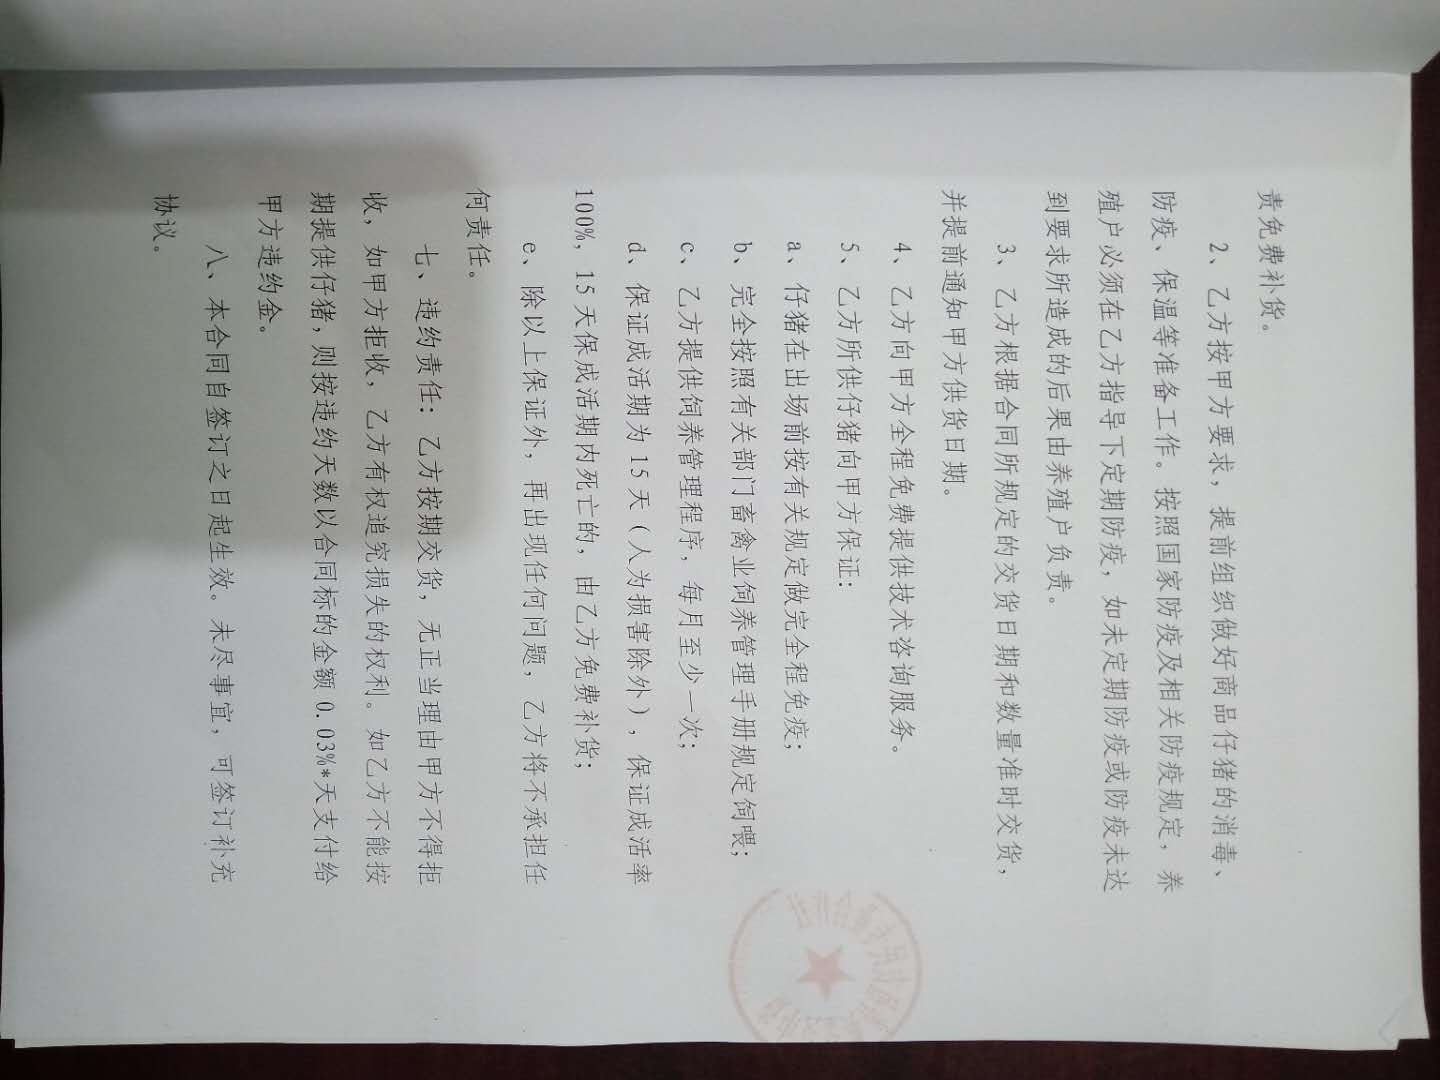 责免费补货。
2、乙方按甲方要求，提前组织做好商品仔猪的消毒、
防疫、保温等准备工作。按照国家防疫及相关防疫规定，养
殖户必须在乙方指导下定期防疫，如未定期防疫或防疫未达
到要求所造成的后果由养殖户负责。
3、乙方根据合同所规定的交货日期和数量准时交货，
并提前通知甲方供货日期。
4、乙方向甲方全程免费提供技术咨询服务。
5、乙方所供仔猪向甲方保证：
a、仔猪在出场前按有关规定做完全程免疫；
b、完全按照有关部门畜禽业饲养管理手册规定饲喂；
c、乙方提供饲养管理程序，每月至少一次；
d、保证成活期为15天（人为损害除外），保证成活率
100%，15天保成活期内死亡的，由乙方免费补货；
e、除以上保证外，再出现任何问题，乙方将不承担任
何责任。
七、违约责任：乙方按期交货，无正当理由甲方不得拒
收，如甲方拒收，乙方有权追究损失的权利。如乙方不能按
期提供仔猪，则按违约天数以合同标的金额0.03%*天支付给
甲方违约金。
八、本合同自签订之日起生效。未尽事宜，可签订补充
协议。